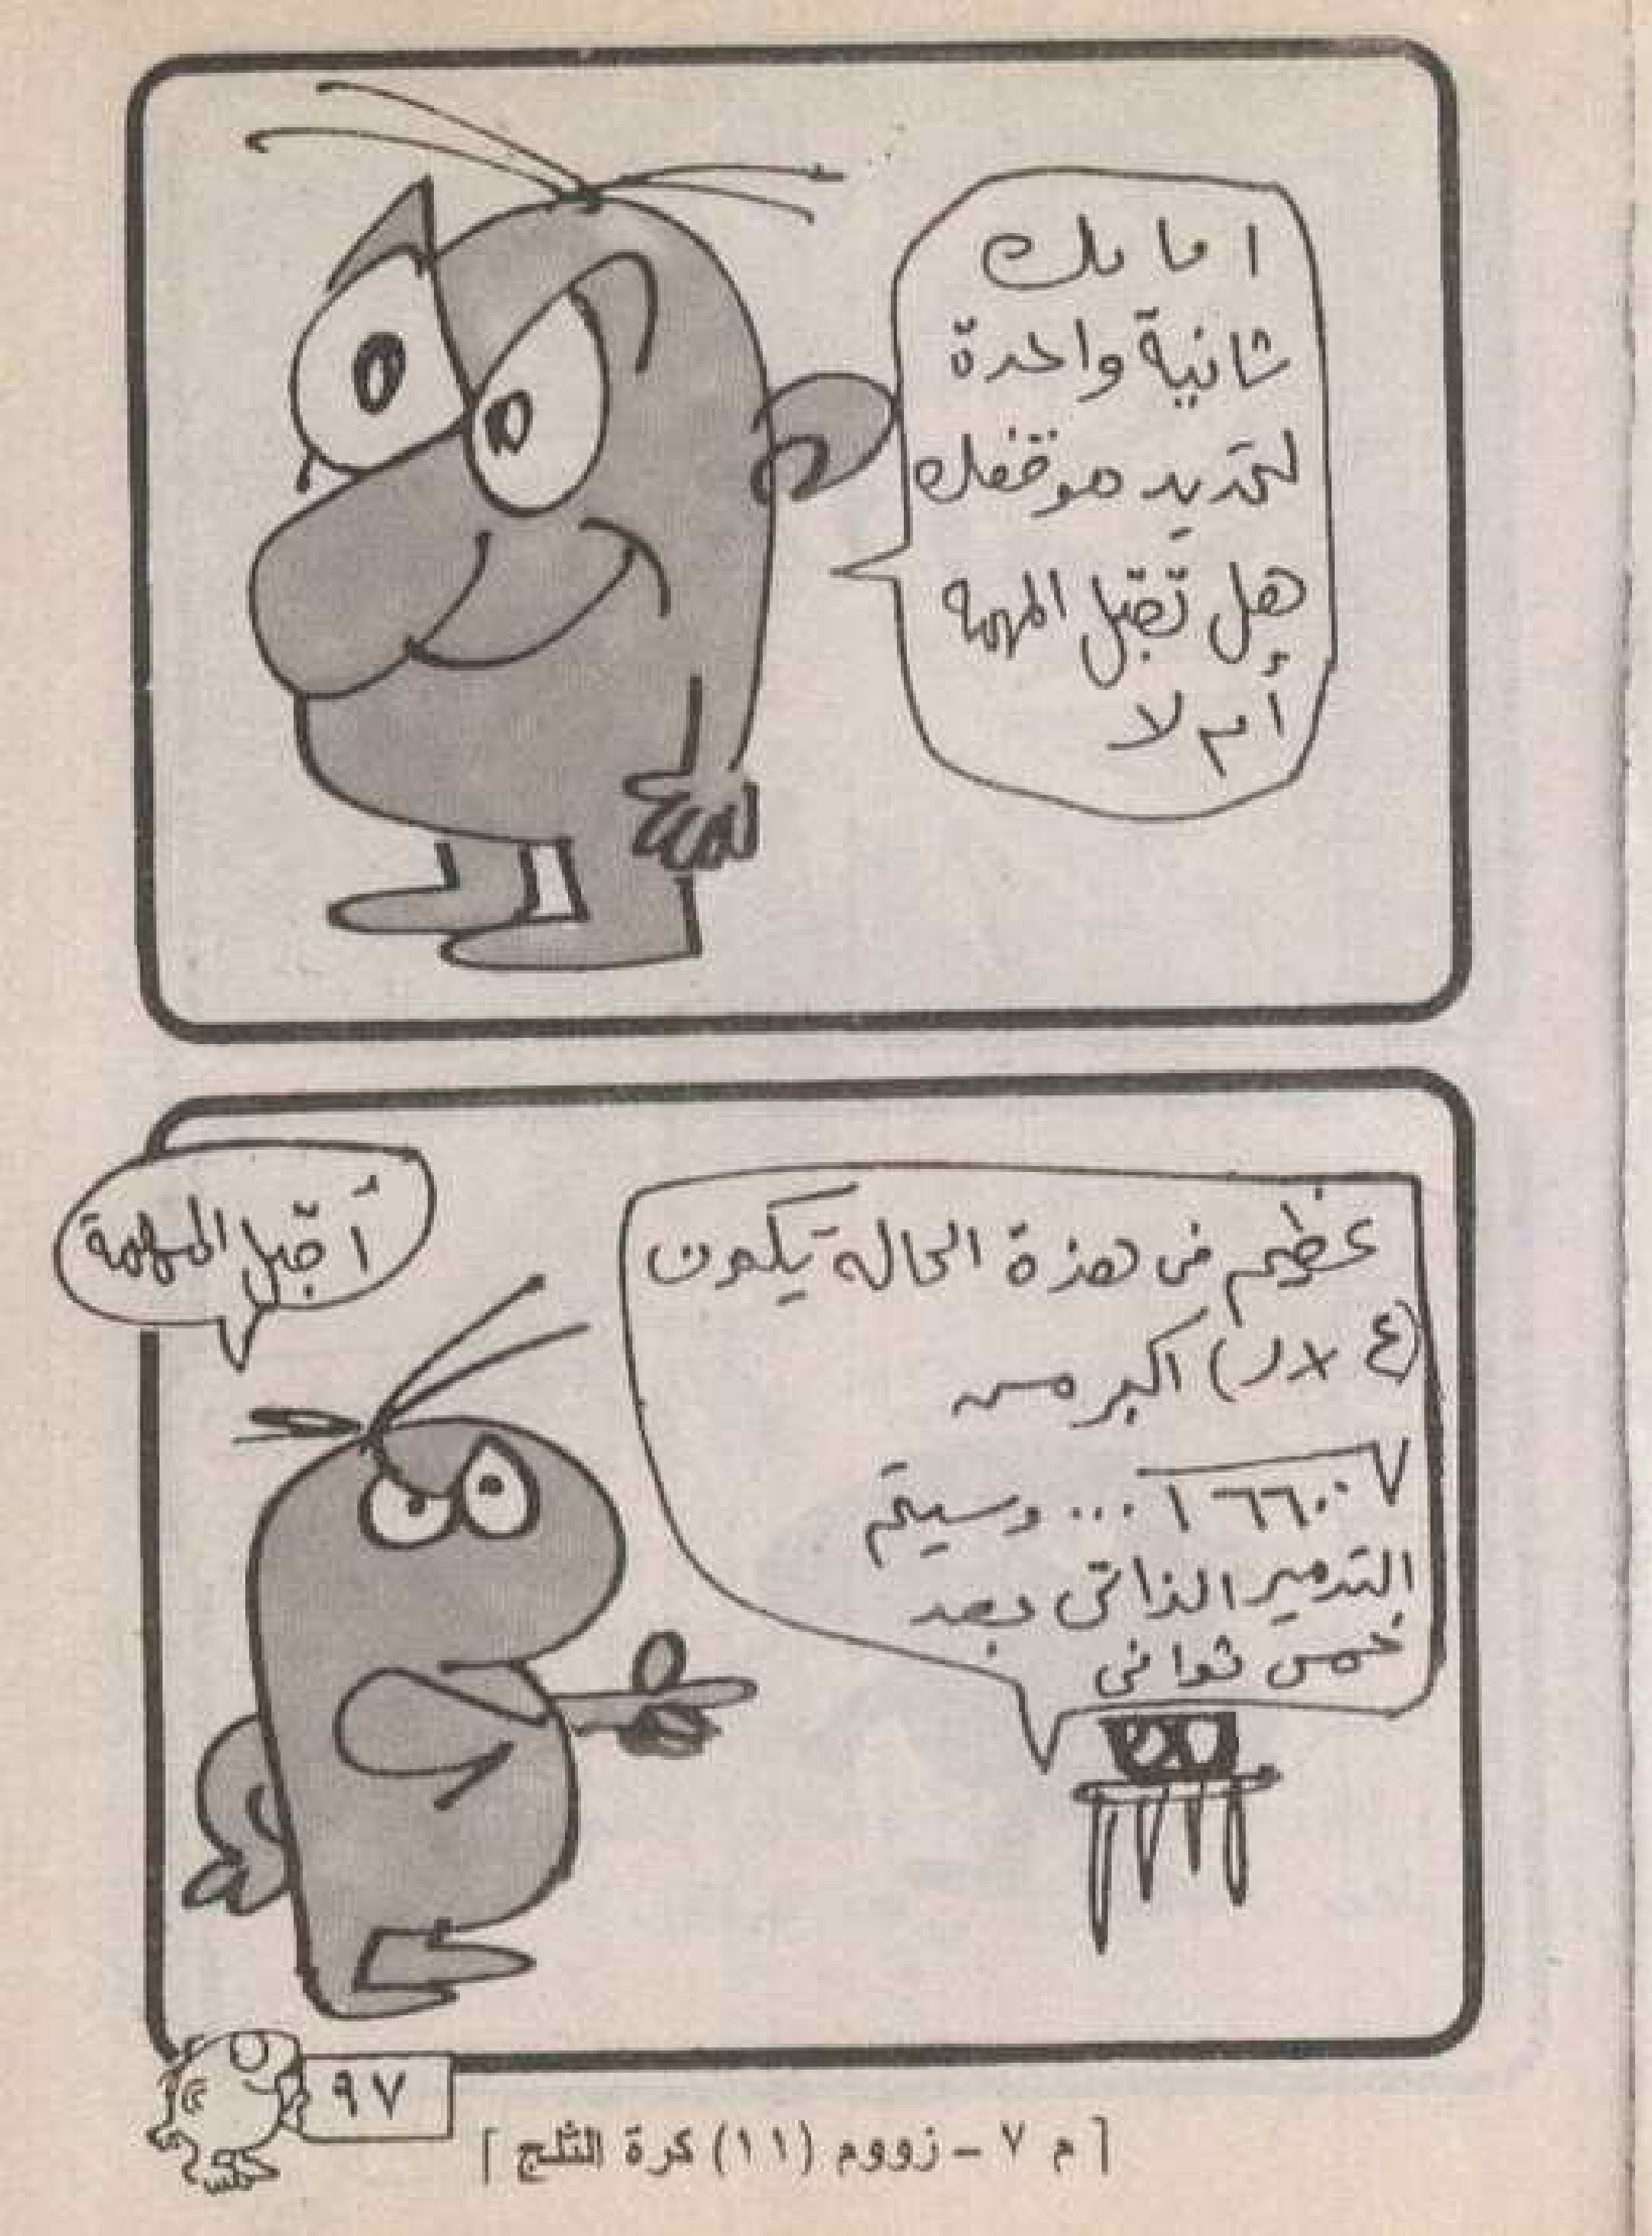 امامك
ثانية واحدة
لتحديد موقفك
هل تقبل المهمة
أم لا
أقبل المهمة
عظيم فى هذة الحالة يكون
أكبر من
وسيتم ...
التدمير الذاتى بعد
خمس ثوانى
٩٧
[ م ٧ – زووم (١١) كرة الثلج ]